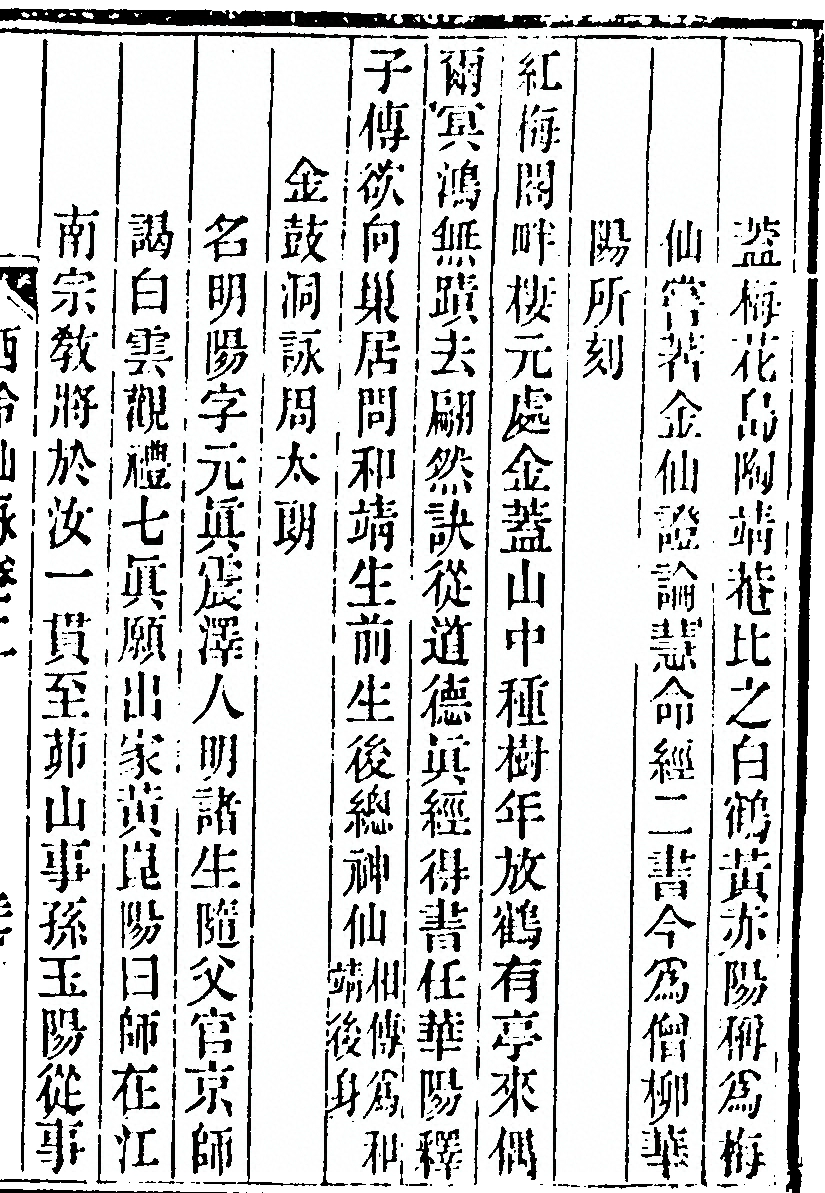 蓋梅花島陶靖菴比之白鶴黃赤陽稱爲梅
仙嘗著金仙證論慧命經二書今爲僧柳華
陽所刻
紅梅閣畔棲元處金蓋山中種樹年放鶴有亭來偶
爾冥鴻無蹟去翩然訣從道德眞經得書任華陽釋
子傳欲向巢居問和靖生前生後總神仙相傳爲和靖後身
金鼓洞詠周太朗
名明陽字元眞震澤人明諸生隨父官京師
謁白雲觀禮七眞願出家黃崑陽曰師在江
南宗教將於汝一貫至茆山事孫玉陽從事
西泠仙詠卷二